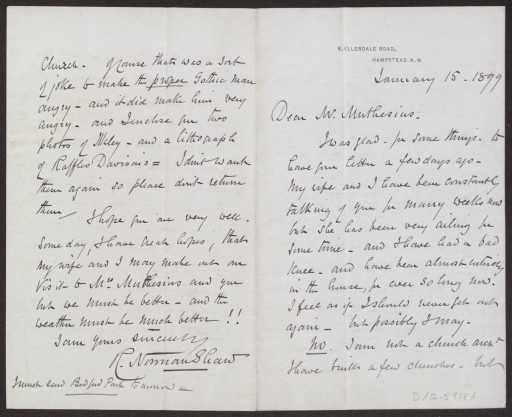 6, ELLERDALE ROAD,
HAMPSTEAD. N.W.
January 15. 1899
Dear Mr. Muthesius.
I was glad - for some things - to
have your letter a few days ago -
My wife and I have been constantly
talking of you for many weeks now
but she has been very ailing for
some time - and I have had a bad
knee - and have been almost entirely
in the house, for ever so long now.
I feel as if I should never get out
again - but possibly I may -
No. I am not a church archt
I have built a few churches - but
Church - Of course that was a sort
of joke to make the proper Gothic man
angry - and it did make him very
angry - and I enclose you two
photos of Ilkley - and a lithograph
of Raffles Davison's = I don't want
them again so please don't return
them
I hope you are very well -
Some day, I have great hopes, that
my wife and I may make out our
visit to Mrs Muthesius and you
but we must be better - and the
weather must be much better !!
I am yours sincerely
R. Norman Shaw
I must send Bedford Park tomorrow -
D 102-5981